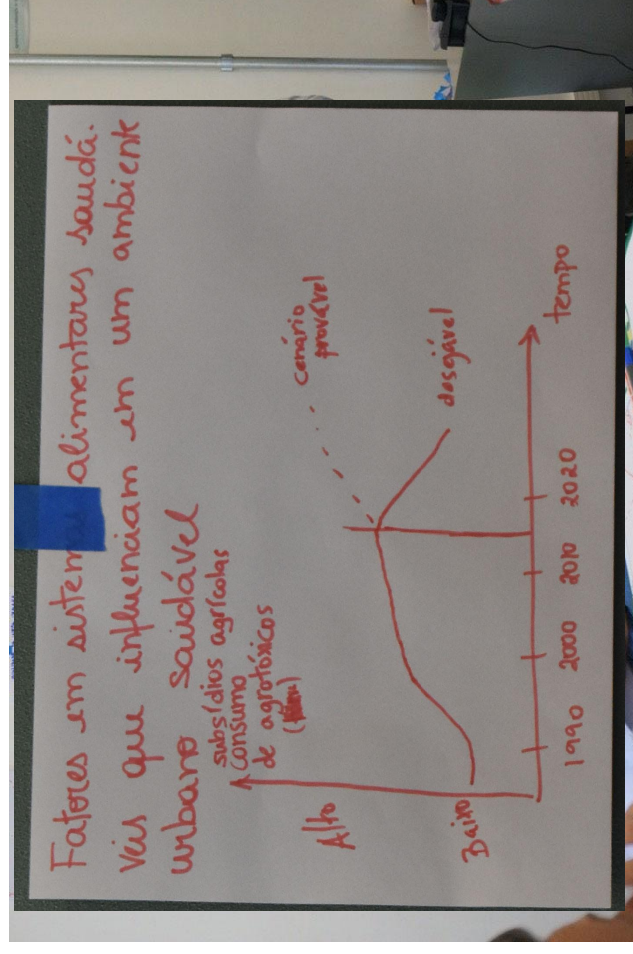 Fatores em sistemas alimentares saudá-
veis que influenciam em um ambiente
urbano saudável
subsídios agrícolas
consumo
de agrotóxicos
Alto
Baixo
cenário
provável
desejável
1990
2000
2010
2020
tempo